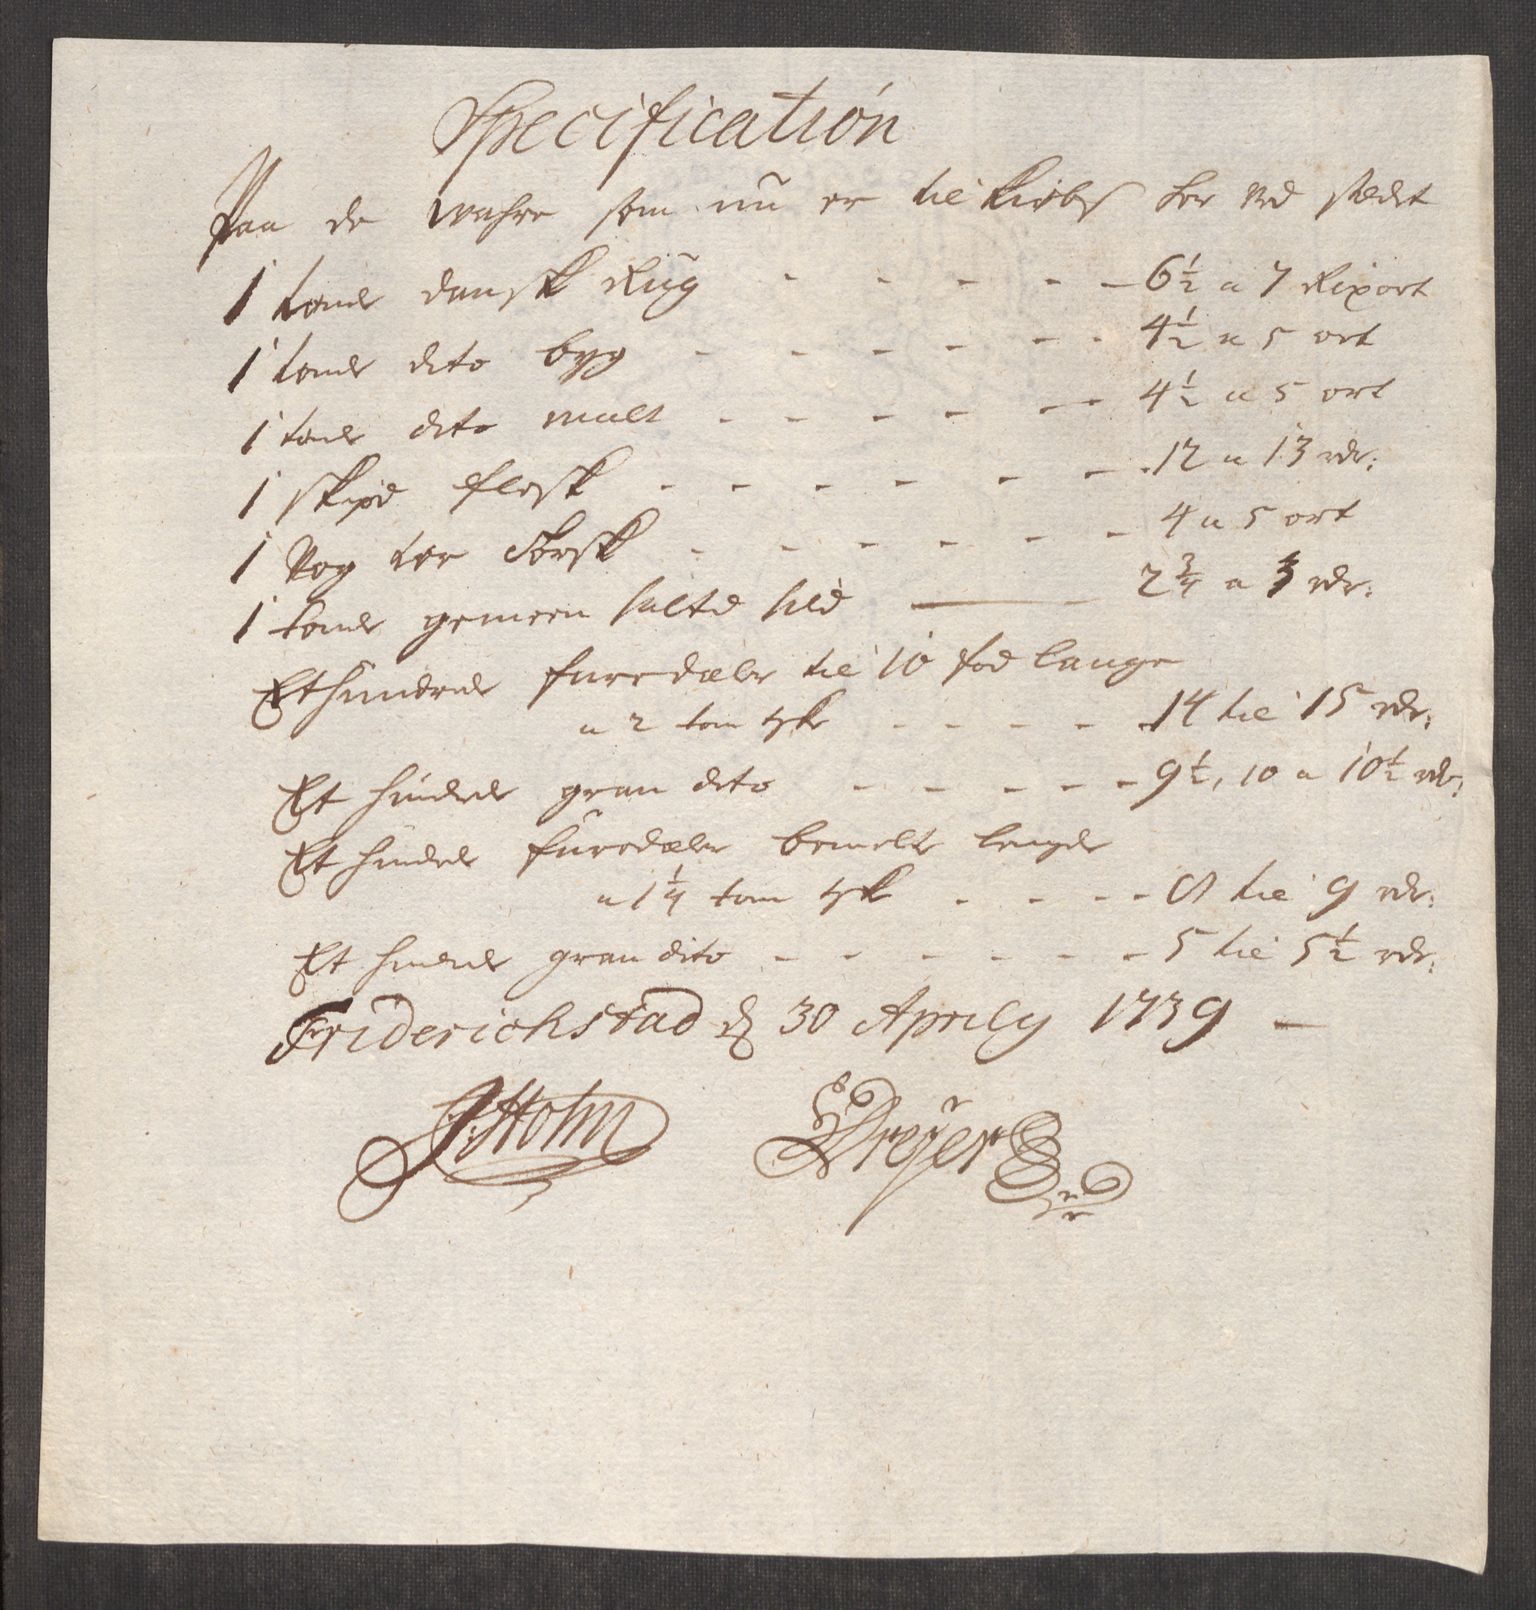 Specification
Paa de wahre som nu er til kiøbs her ved stædet
1 tønde dansk Rug - - - - - 6½ a 7 Rixort
1 tønde dito byg - - - - - - 4½ a 5 ort
1 tønde dito malt - - - - - - 4½ a 5 ort
1 skpd flesk - - - - - - - 12 a 13 rdr:
1 Vog tør Torsk - - - - - - 4 a 5 ort
1 tønde gemeen salted sild — 2¾ a 3 rdr:
Et hundrede furedæler til 10 fod lange
a 2 tom tyk - - - - 14 til 15 rdr:
Et hundrede gran dito - - - - - 9½, 10 a 10½ rdr:
Et hundrede furedæler bemelte lengde
a 1¼ tom tyk - - - - 8 til 9 rdr:
Et hundrede gran dito - - - - - - 5 til 5½ rdr:
Friderichstad d 30 Aprily 1739 —
J: Holm
Dreyer